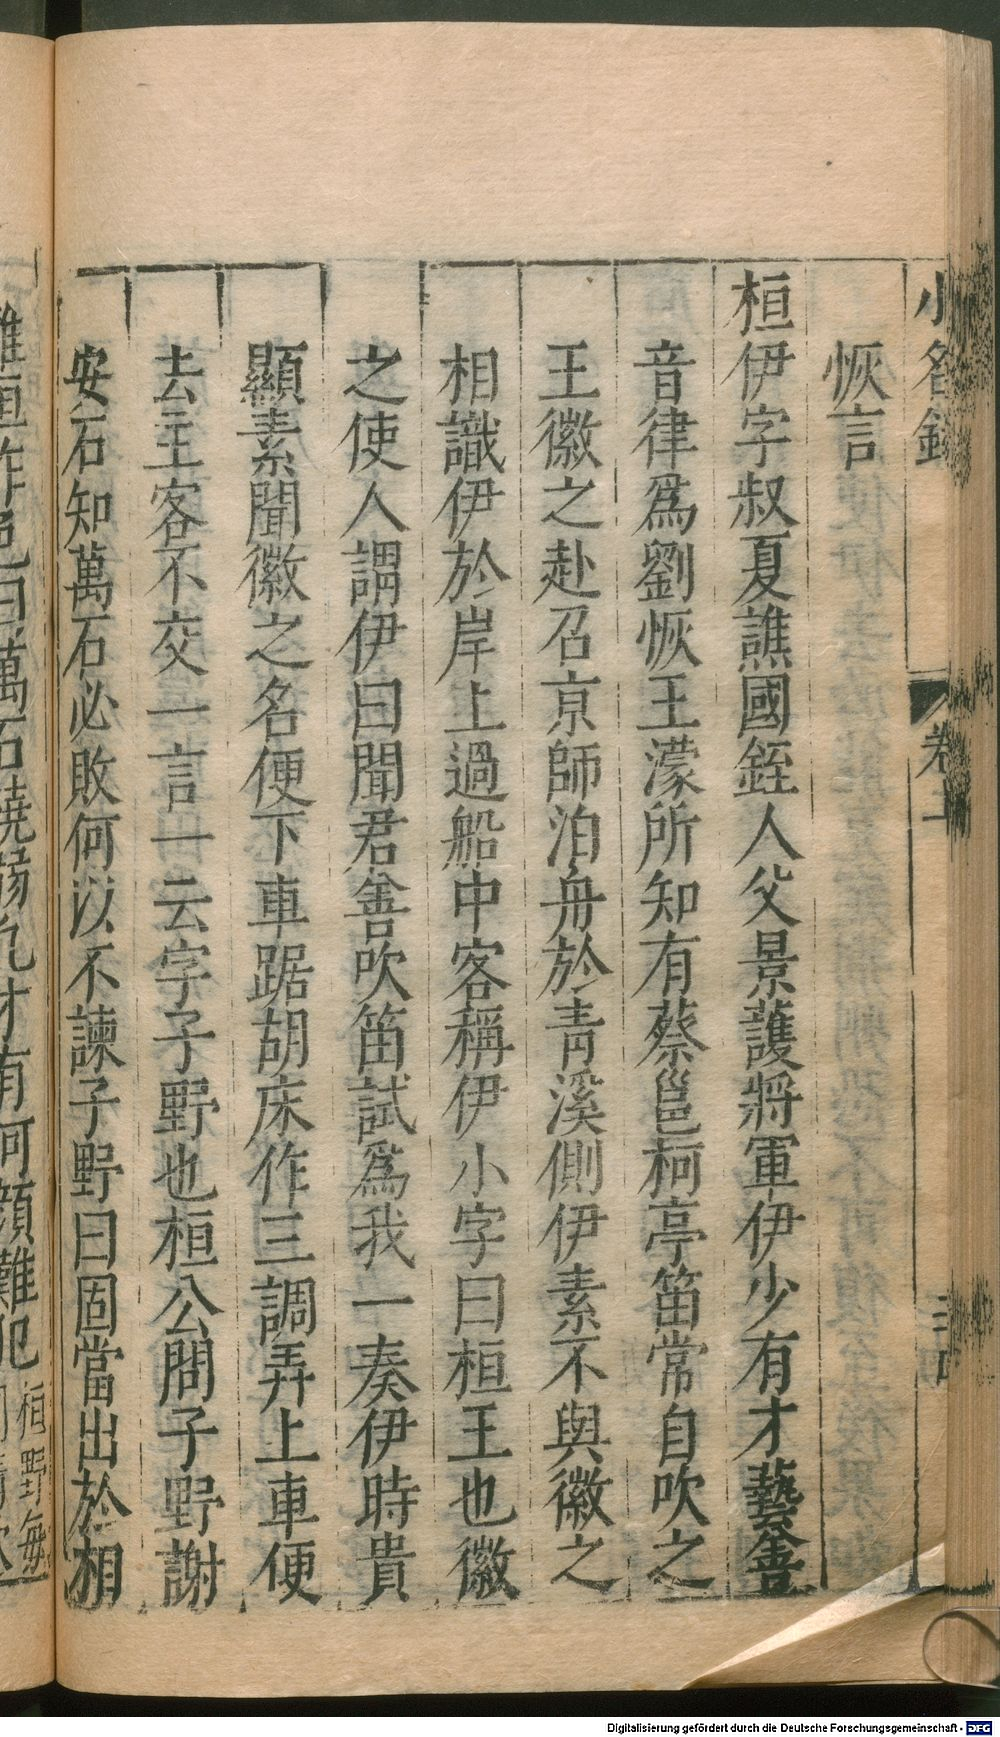 小名錄 卷上
恢言
桓伊字叔夏譙國銍人父景護將軍伊少有才藝善
音律爲劉恢王濛所知有蔡邕柯亭笛常自吹之
王徽之赴召京師泊舟於青溪側伊素不與徽之
相識伊於岸上過船中客稱伊小字曰桓王也徽
之使人謂伊曰聞君善吹笛試爲我一奏伊時貴
顯素聞徽之名便下車踞胡床作三調弄上車便
去主客不交一言一云字子野也桓公問子野謝
安石知萬石必敗何以不諫子野曰固當出於相
難犯 桓野每
Digitalisierung gefördert durch die Deutsche Forschungsgemeinschaft - DFG